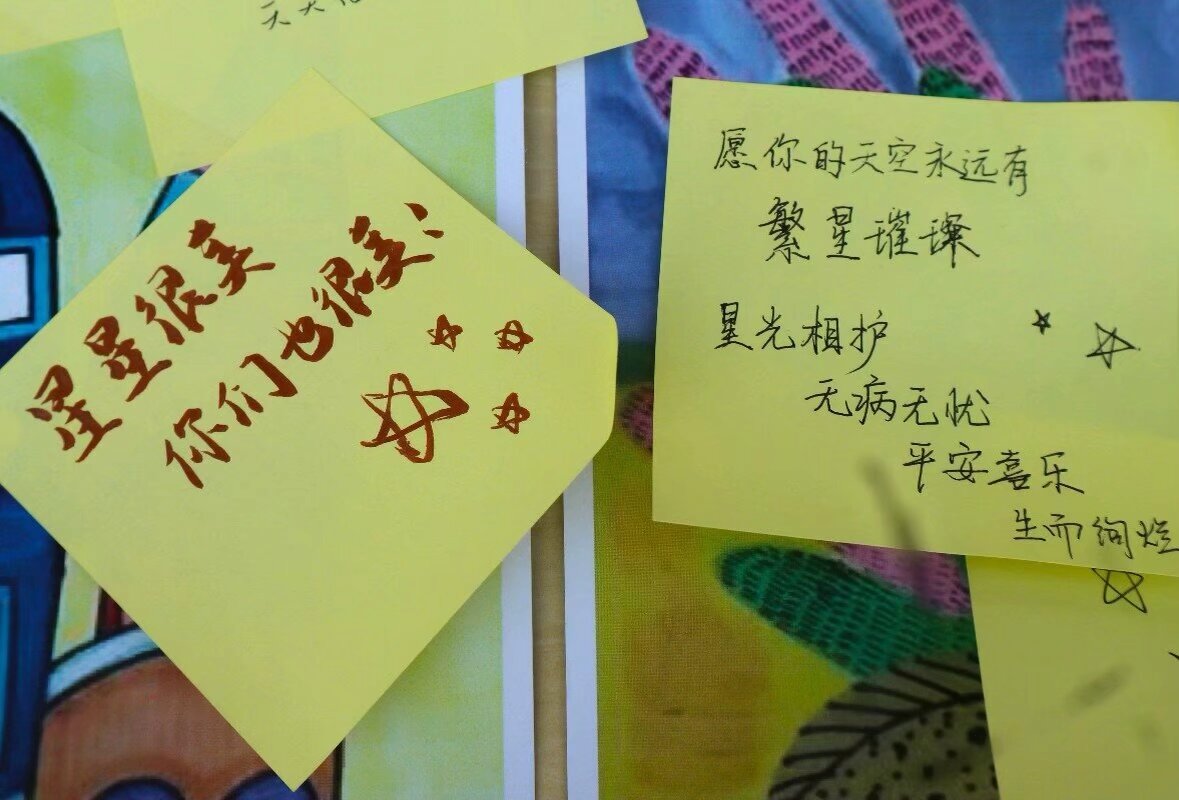 天天
星星很美
你们也很美!
愿你的天空永远有
繁星璀璨
星光相护
无病无忧
平安喜乐
生而绚烂